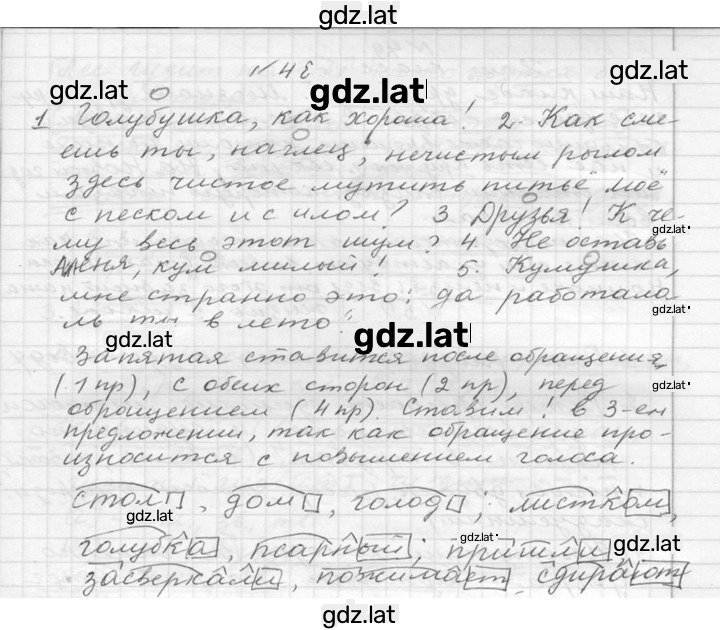 gdz.lat
№ 48
gdz.lat
gdz.lat
gdz.lat
1 Голубушка, как хороша! 2. Как сме-
ешь ты, наглец, нечистым рылом
здесь чистое мутить питьё моё
с песком и с илом? 3 Друзья! К че-
му весь этот шум? 4. Не оставь
меня, кум милый! 5. Кумушка,
мне странно это: да работала-
ль ты в лето?
gdz.lat
gdz.lat
gdz.lat
gdz.lat
Запятая ставится после обращения
(1 пр), с обеих сторон (2 пр), перед
обращением (4 пр). Ставим ! в 3-ем
предложении, так как обращение про-
износится с повышением голоса.
gdz.lat
стол, дом, голод; листком,
gdz.lat
голубка, псарный; пришли
gdz.lat
gdz.lat
засверкали, пожимает, сдирают
gdz.lat